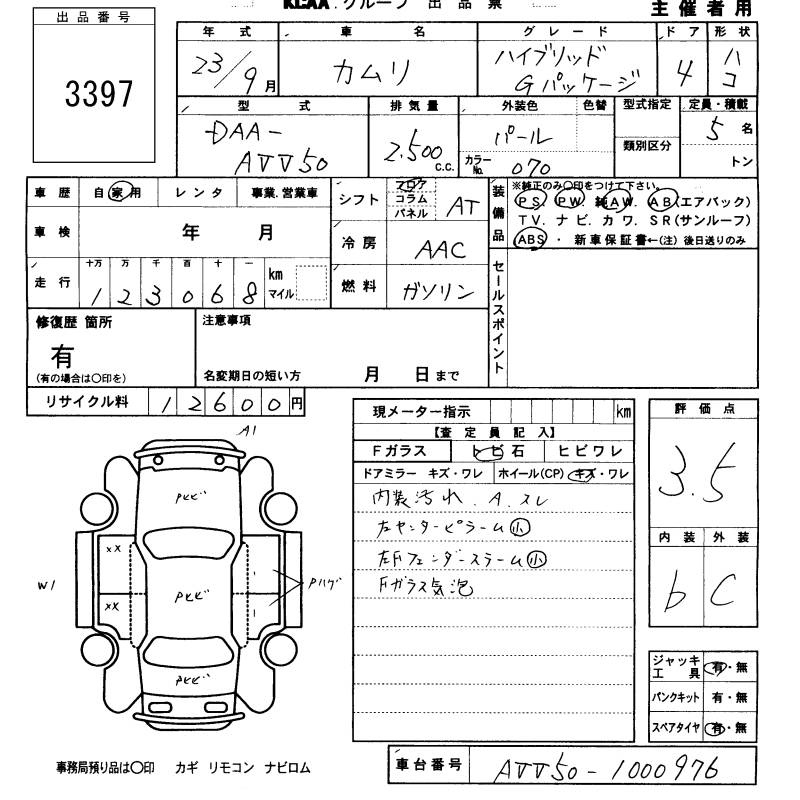 KLAA.グループ 出品票
主催者用
出品番号
3397
年式 車名 グレード ドア 形状
23/9月 カムリ ハイブリッド Gパッケージ 4 ハコ
型式 排気量 外装色 色替 型式指定 定員・積載
DAA-AVV50 2,500 c.c. パール カラーNo. 070 類別区分 5名
トン
車歴 自家用 レンタ 事業.営業車
車検 年 月
走行 十万 万 千 百 十 一 km マイル
1 2 3 0 6 8
シフト フロア コラム パネル AT
冷房 AAC
燃料 ガソリン
装備品
※純正のみ○印をつけて下さい。
PS. PW. 純AW. AB(エアバック)
TV.ナビ.カワ.SR(サンルーフ)
ABS ・ 新車保証書←(注)後日送りのみ
セールスポイント
修復歴 箇所
有
(有の場合は○印を)
注意事項
名変期日の短い方 月 日まで
リサイクル料 12600円
現メーター指示 km
【査定員記入】
Fガラス トビ石 ヒビワレ
ドアミラー キズ・ワレ ホイール(CP) キズ・ワレ
内装汚れ.A.スレ
左センターピラーム小
左Fフェンダースラーム小
Fガラス気泡
評価点
3.5
内装 外装
b C
A1
Pヒビ
XX
W1
Pヒビ
Pハゲ
XX
PヒビA
ジャッキ工具 有・無
パンクキット 有・無
スペアタイヤ 有・無
事務局預り品は○印 カギ リモコン ナビロム
車台番号 AVV50-1000976